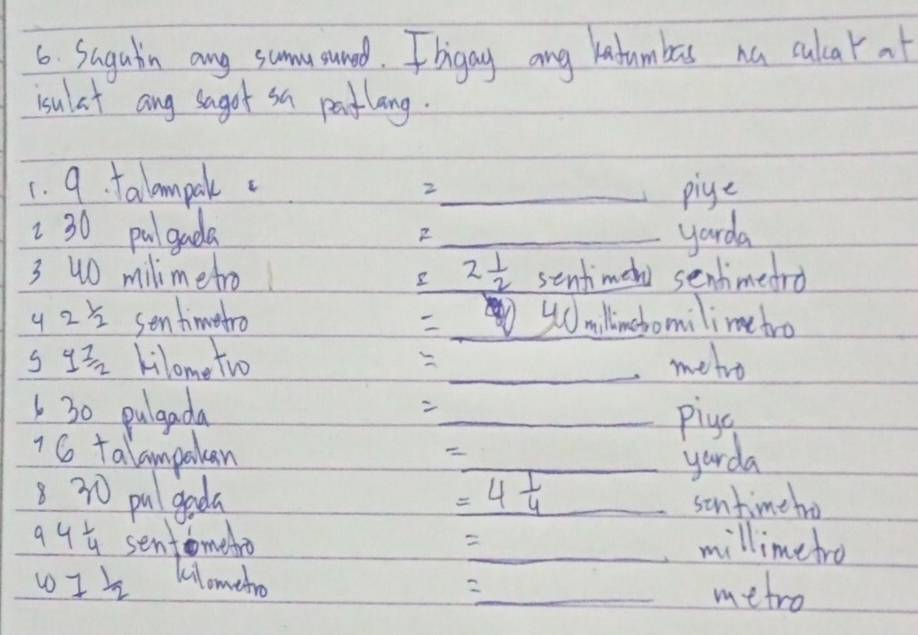 6. Sagutin ang sumusunod. Ibigay ang katumbas na sukat at
isulat ang sagot sa patlang.
1. 9 talampak = ________ piye
2 30 pulgada = ________ yarda
3 40 milimetro = 2 1/2 sentimetro sentimetro
4 2 1/2 sentimetro = 40 millimetro milimetro
5 1/2 kilometro = ________ metro
6 30 pulgada = ________ piye
7 6 talampakan = ________ yarda
8 30 pulgada = 4 1/4 sentimetro
9 4 1/4 sentimetro = ________ millimetro
10 1 1/2 kilometro = ________ metro